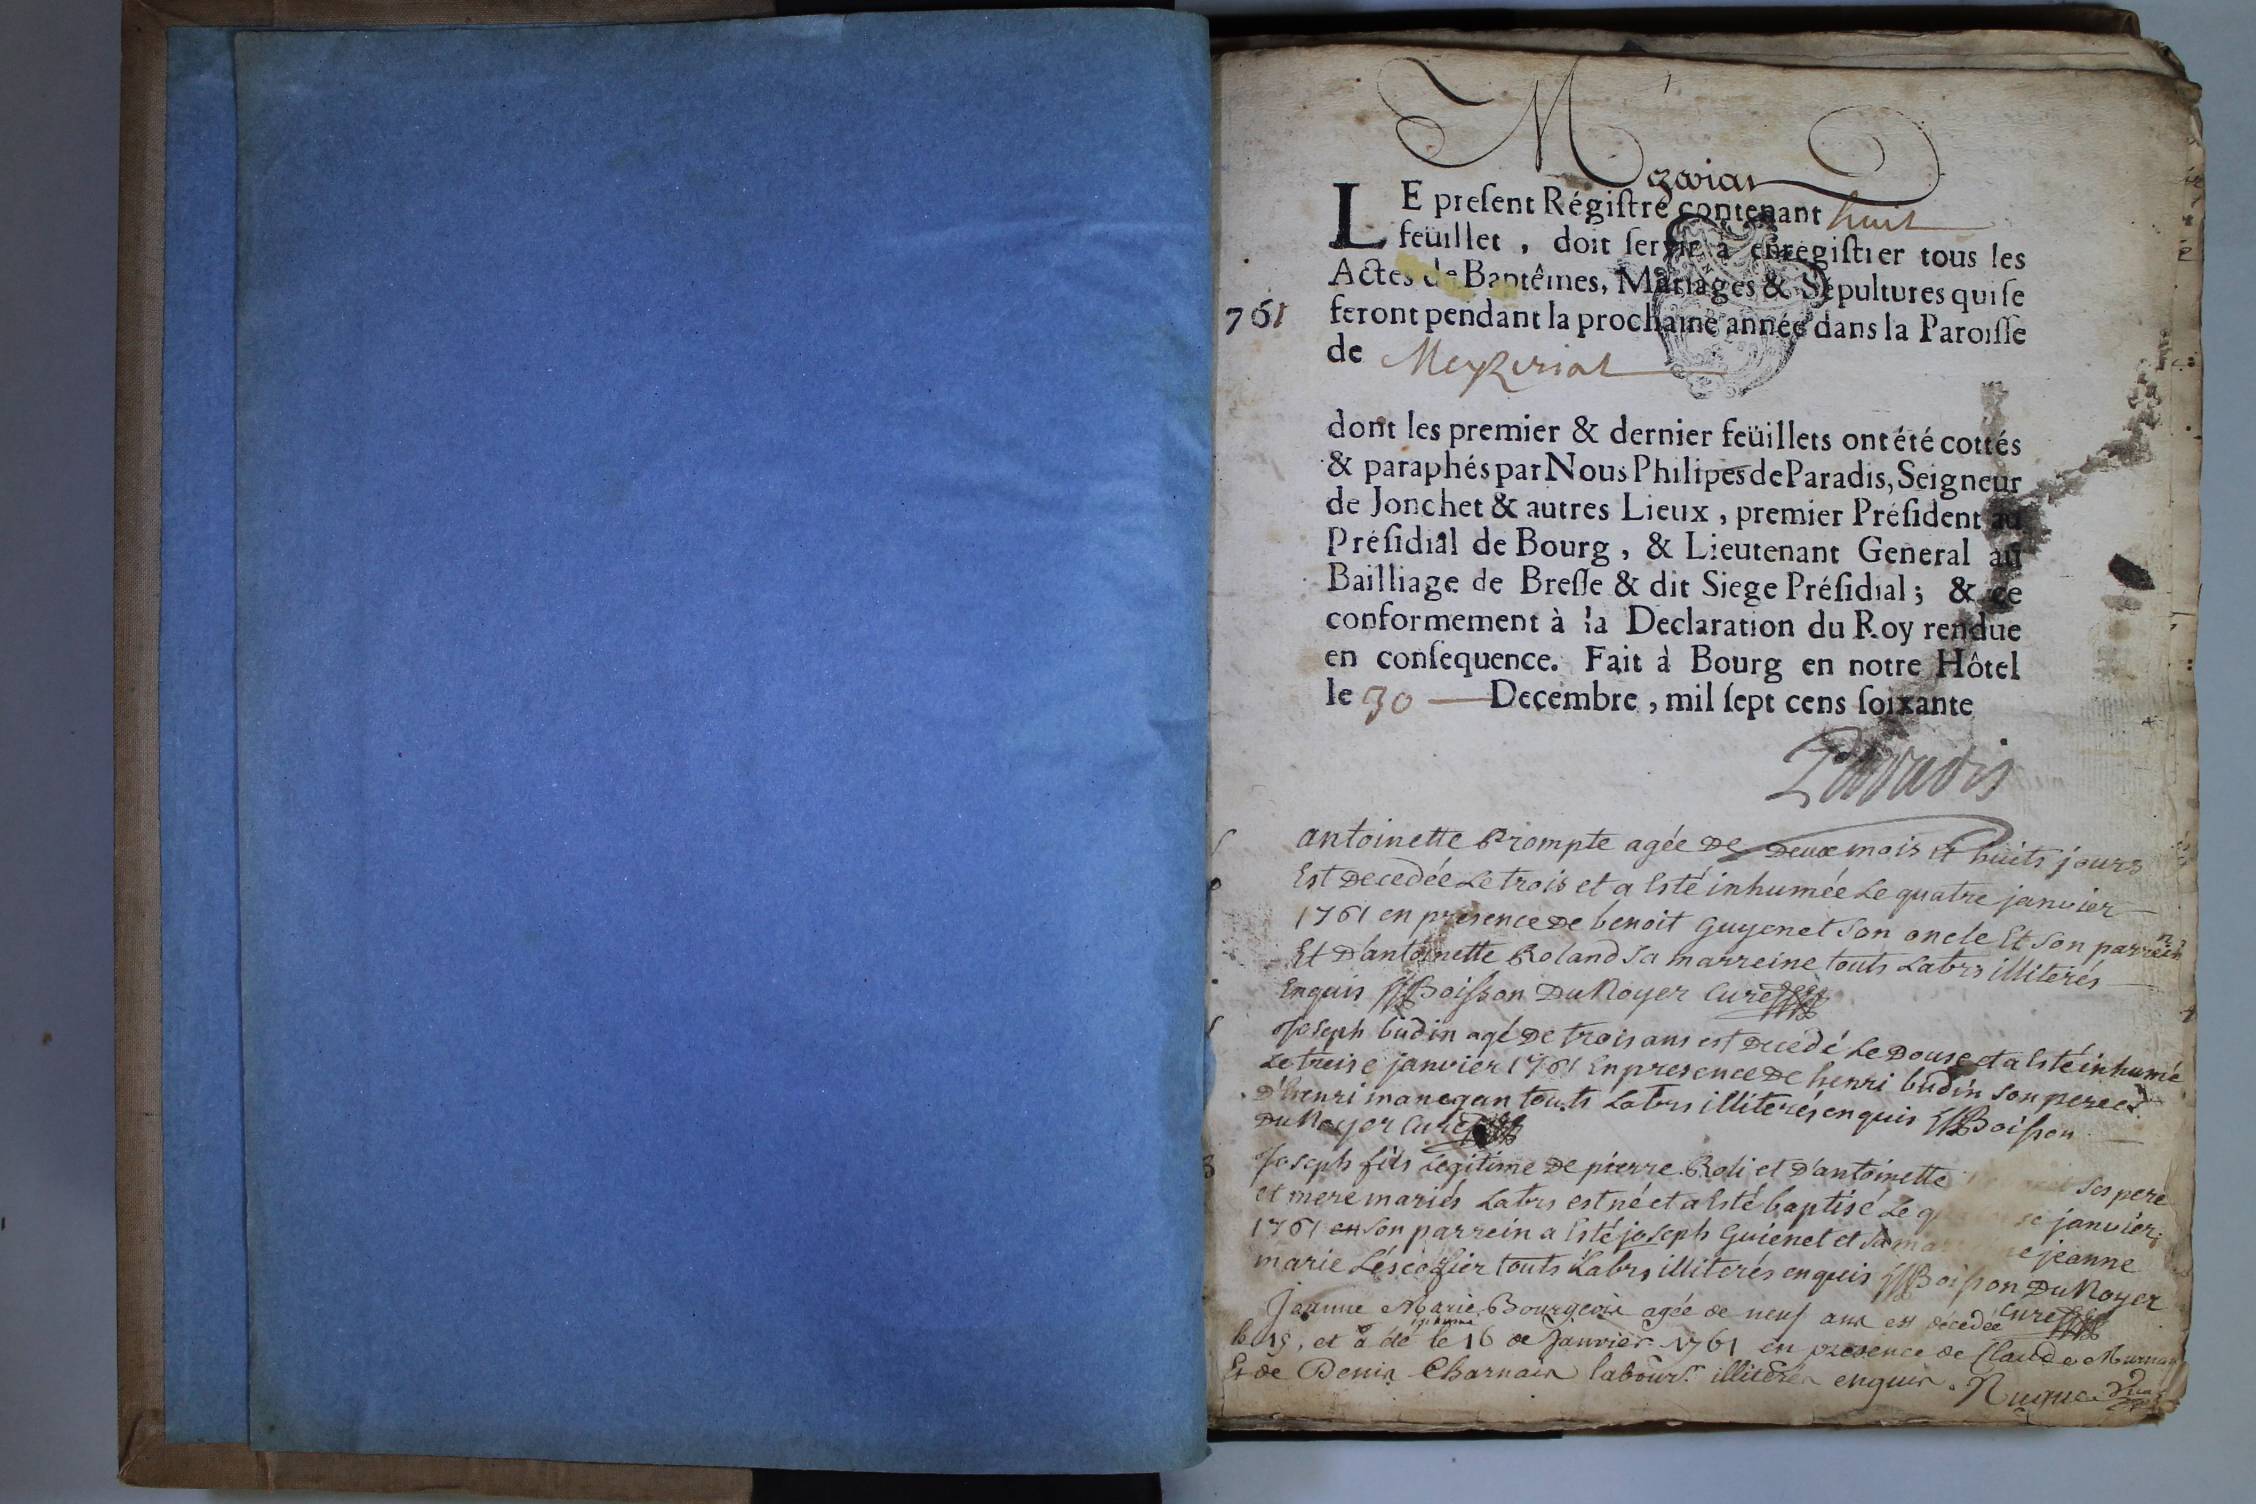 Mezeriat
LE preſent Régiſtre contenant huit
feüillet , doit ſervir à enregiſtrer tous les
Actes de Baptêmes, Mariages & Sépultures qui ſe
feront pendant la prochaine année dans la Paroiſſe
761
de Meyzeriat
dont les premier & dernier feüillets ont été cottés
& paraphés par Nous Philipes de Paradis, Seigneur
de Jonchet & autres Lieux , premier Préſident au
Préſidial de Bourg , & Lieutenant General au
Bailliage de Breſſe & dit Siege Préſidial ; & ce
conformement à la Declaration du Roy rendue
en conſequence. Fait à Bourg en notre Hôtel
le 30 Decembre , mil ſept cens ſoixante
Paradis
antoinette Prompte agée De Deux mois et huits jours
Est Decedée Le trois et a Esté inhumée Le quatre janvier
1761 en presence De benoit Guyenet Son oncle Et Son parrein
Et D'antoinette Roland Sa marreine touts Labrs illiterés
Enquis Boisson Du Noyer Curé
Joseph budin agé De trois ans est Decedé Le Douse et a Esté inhumé
Le treise janvier 1761 En presence De henri budin Son pere et
D'henri touts Labrs illiterés enquis Boisson
Du Noyer Curé
Joseph fils Legitime De pierre Roli et D'antoinette Ses pere
et mere mariés Labrs est né et a Esté baptisé Le janvier
1761 Son parrein a Esté joseph Guienet et Sa jeanne
marie touts Labrs illiterés enquis Boisson Du Noyer
Curé
Jeanne Marie Bourgeois agée de neuf ans est décedée
le 15, et a été inhumé le 16 de Janvier 1761 en presence de Claude
Et de Denis Charnain labour.rs illiterés enquis.